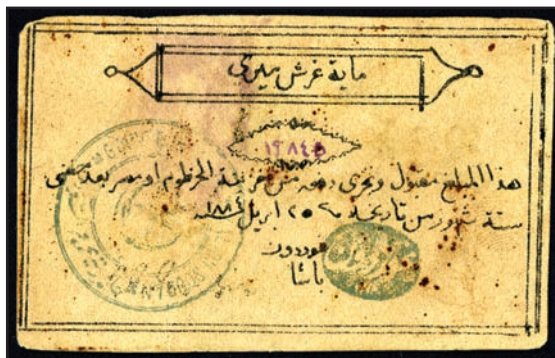 ماية غرش ميري
١٩٨٤٥
هذا المبلغ مقبول ويجري دفعه من خزينة الخرطوم او مصر بعد مضي
ستة شهور من تاريخه ٢٥ ابريل ١٨٨٤
غوردون
باشا